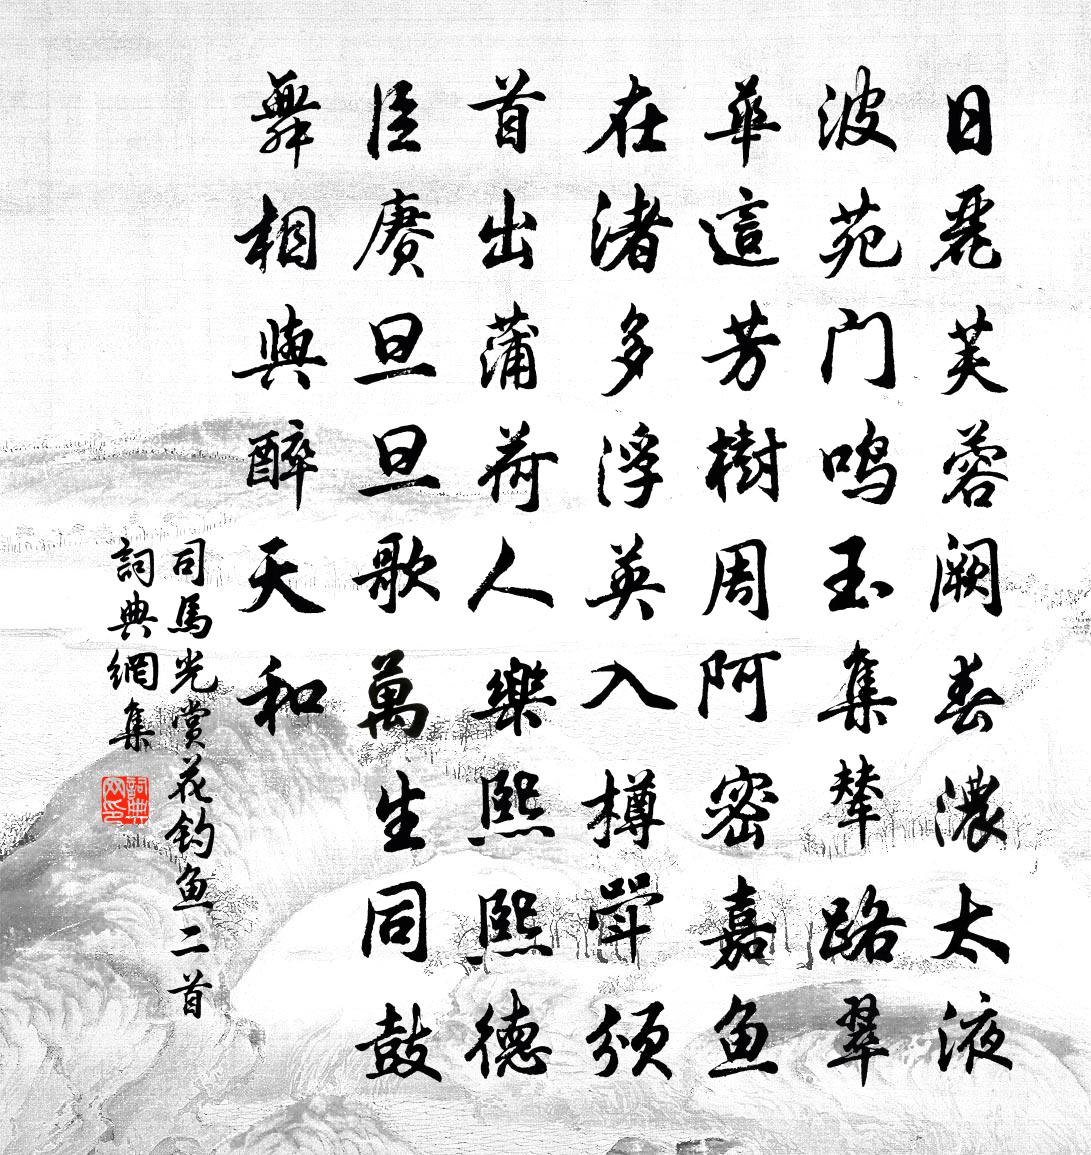 日麗芙蓉闕春濃太液
波苑门鸣玉集輦路翠
華這芳樹周阿密嘉鱼
在渚多浮英入樽斝頒
首出蒲荷人樂熙熙德
臣赓旦旦歌萬生同鼓
舞相與醉天和
司馬光賞花釣鱼二首
詞典網集
詞典网印